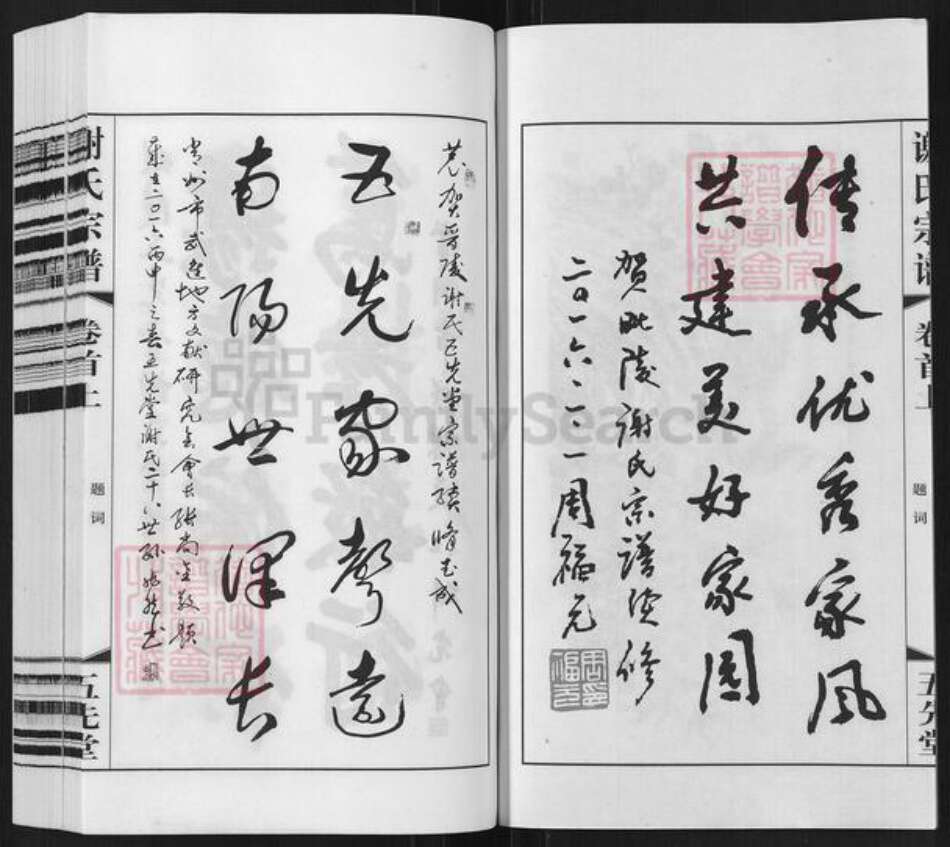 谢氏宗谱
卷首上
题词
五先堂
传承优秀家风
共建美好家园
贺毗陵谢氏宗谱续修
二〇一六·二·一周福元
恭贺晋陵谢氏五先堂宗谱续脩告成
五先家聲遠
南陽世澤长
常州市武进地方文献研究会会长张尚金敬题
岁在二〇一六丙申之春五先堂谢氏二十八世孙
谢氏宗谱
卷首上
题词
五先堂
FamilySearch